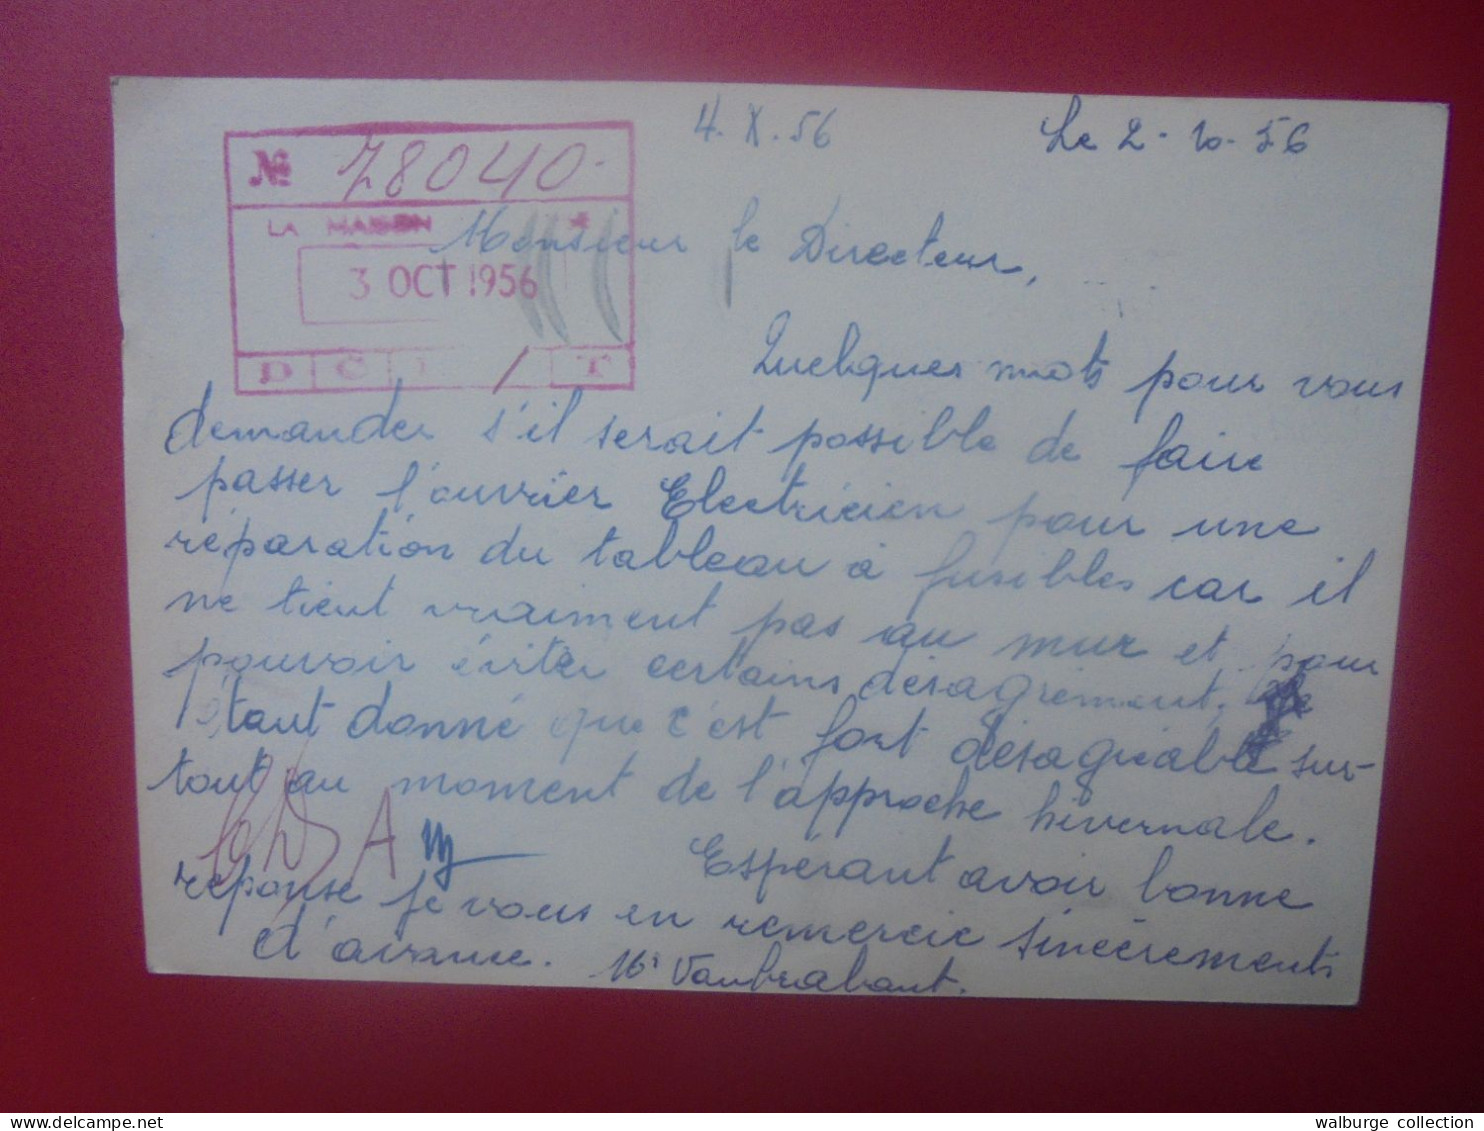 4. X. 56
Le 2-10-56
№ 78040-
LA MAISON
3 OCT 1956
D C T
Monsieur le Directeur,
Quelques mots pour vous
demander s'il serait possible de faire
passer l'ouvrier Electricien pour une
réparation du tableau à fusibles car il
ne tient vraiment pas au mur et pour
pouvoir éviter certains désagrément,
étant donné que c'est fort désagréable sur-
tout au moment de l'approche hivernale.
Espérant avoir bonne
réponse je vous en remercie sincèrements
d'avance. Vanbrabant.
A
walburge collection
delcampe.net